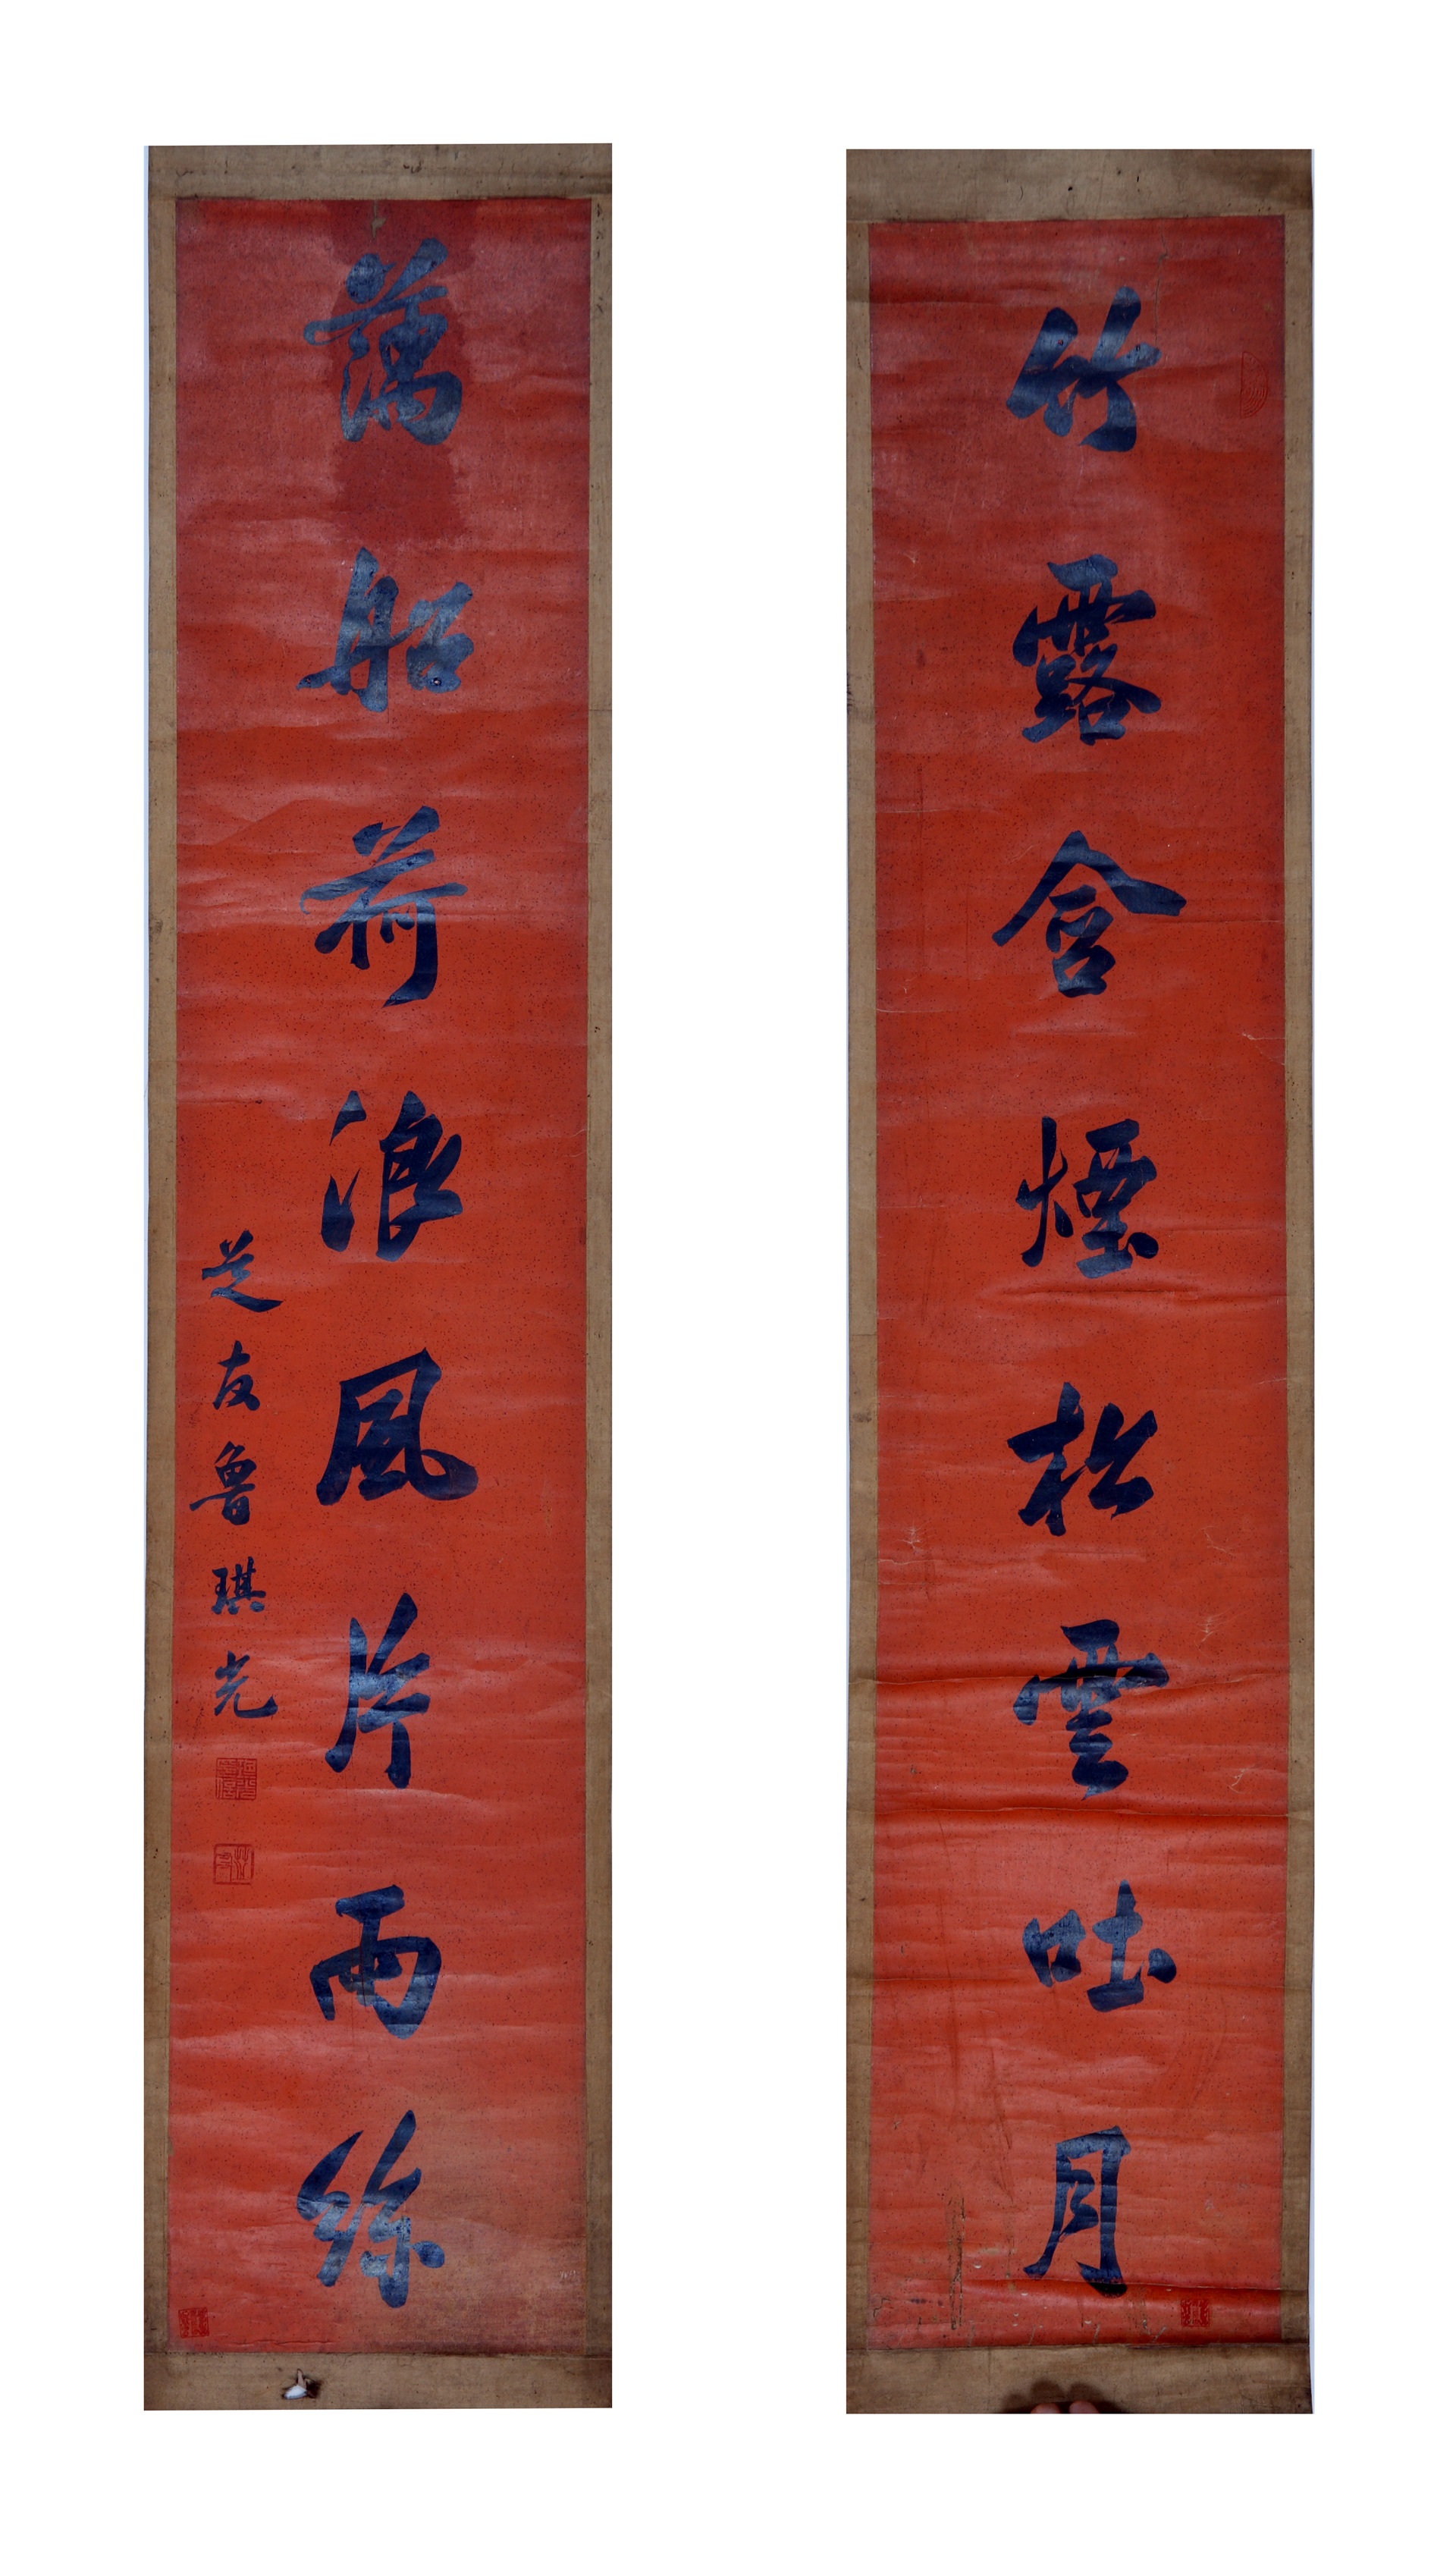 竹露含煙松雲吐月
藕船荷浪風片雨絲
芝友魯琪光